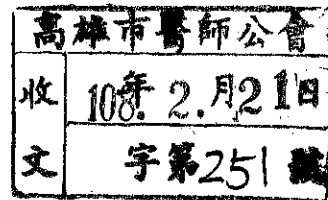 高雄市醫師公會
收文
108年2.月21日
字第251號